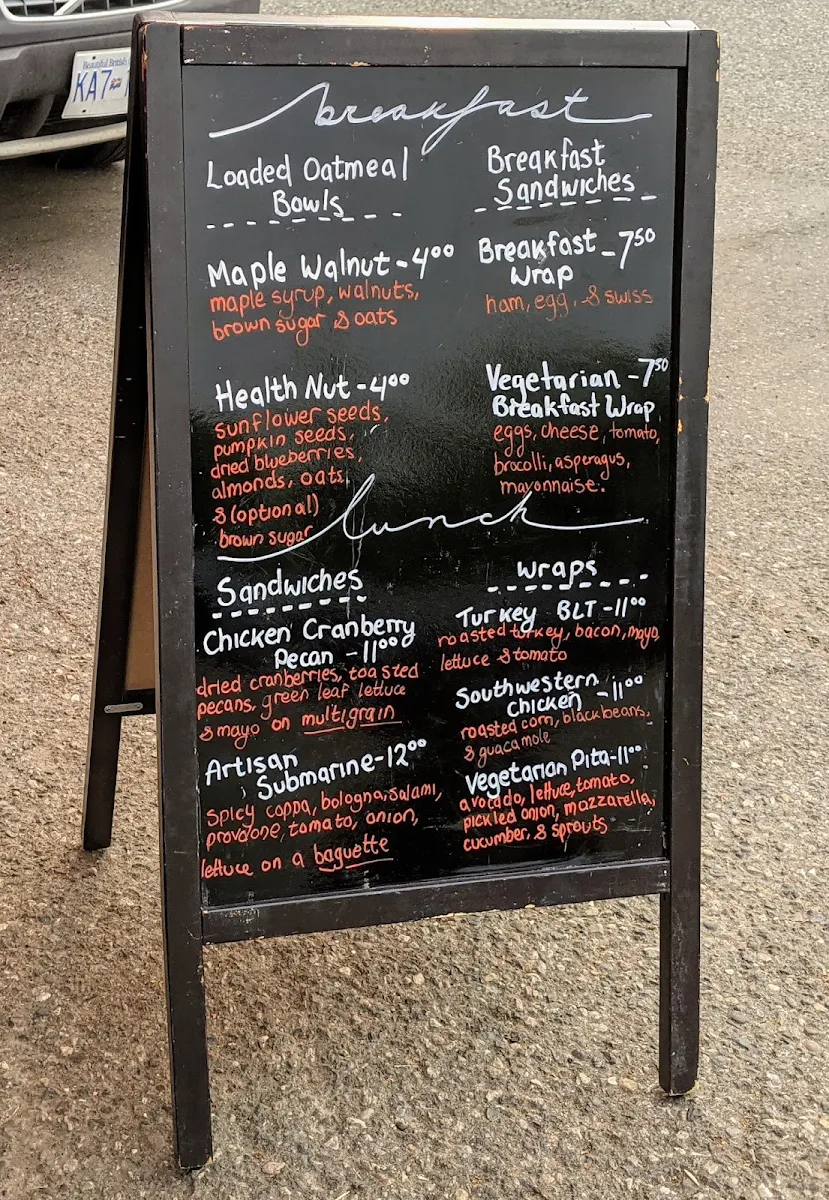 Beautiful British
KA7
breakfast
Loaded Oatmeal
Bowls
Maple Walnut - 4⁰⁰
maple syrup, walnuts,
brown sugar & oats
Health Nut - 4⁰⁰
sunflower seeds,
pumpkin seeds,
dried blueberries,
almonds, oats,
& (optional)
brown sugar
Breakfast
Sandwiches
Breakfast - 7⁵⁰
Wrap
ham, egg, & swiss
Vegetarian - 7⁵⁰
Breakfast Wrap
eggs, cheese, tomato,
brocolli, asperagus,
mayonnaise.
lunch
Sandwiches
Chicken Cranberry
Pecan - 11⁰⁰
dried cranberries, toasted
pecans, green leaf lettuce
& mayo on multigrain
Artisan
Submarine - 12⁰⁰
spicy coppa, bologna, salami,
provolone, tomato, onion,
lettuce on a baguette
wraps
Turkey BLT - 11⁰⁰
roasted turkey, bacon, mayo,
lettuce & tomato
Southwestern
Chicken - 11⁰⁰
roasted corn, black beans,
& guacamole
Vegetarian Pita - 11⁰⁰
avocado, lettuce, tomato,
pickled onion, mazzarella,
cucumber, & sprouts